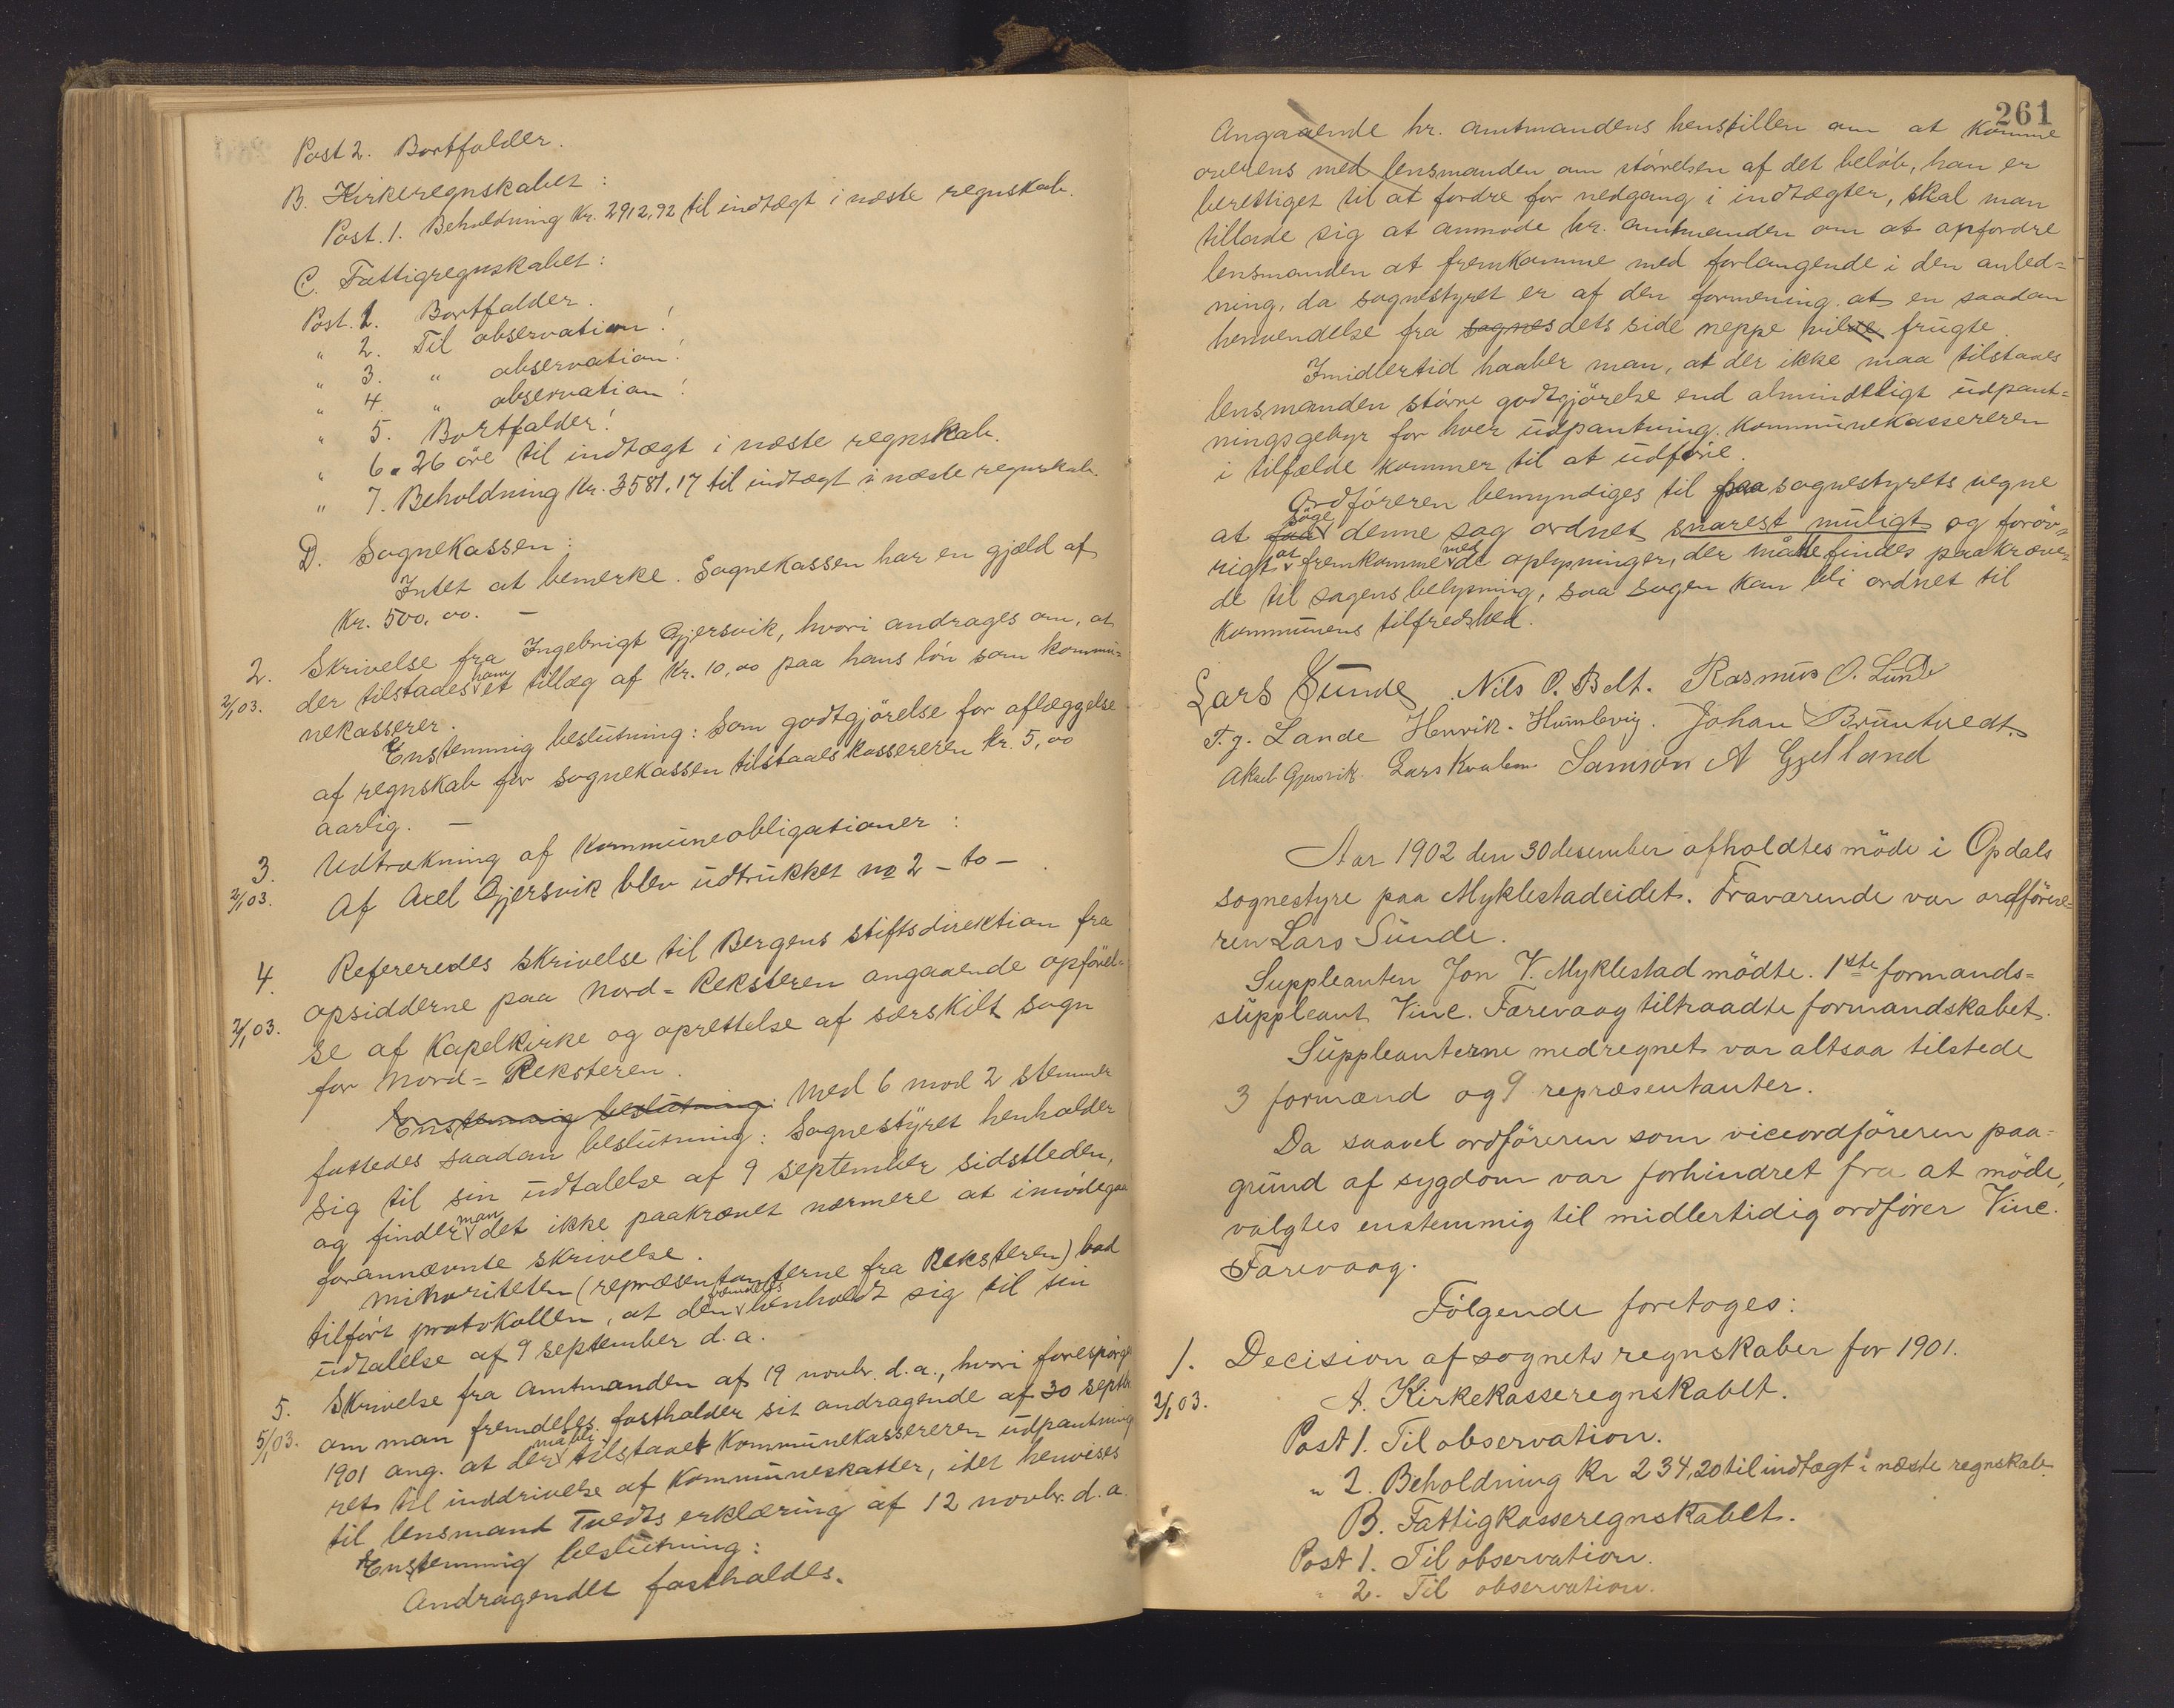 Post 2. Bortfalder.
B. Kirkeregnskabet:
Post. 1. Beholdning Kr. 2912,92 til indtægt i næste regnskab.
C. Fattigregnskabet:
Post. 1. Bortfalder.
" 2. Til observation!
" 3. " observation!
" 4. " observation!
" 5. Bortfalder!
" 6. 26 öre til indtægt i næste regnskab.
" 7. Beholdning Kr. 3581,17 til indtægt i næste regnskab.
D. Sognekassen:
Intet at bemerke. Sognekassen har en gjæld af
Kr. 500,00. –
2. Skrivelse fra Ingebrigt Gjersvik, hvori andrages om, at
2/1 03. der tilstaaes ham et tillæg af Kr. 10,00 paa hans lön som kommu-
nekasserer.
Enstemmig beslutning: Som godtgjörelse for aflæggelse
af regnskab for sognekassen tilstaaes kassereren kr. 5,00
aarlig. –
3. Udtrækning af Kommuneobligationer:
2/1 03. Af Axel Gjersvik blev udtrukket no 2 – to –
4. Refereredes skrivelse til Bergens stiftsdirektion fra
opsidderne paa Nord-Reksteren angaaende opförel-
2/1 03. se af Kapelkirke og oprettelse af særskilt sogn
for Nord-Reksteren.
Enstemmig beslutning: Med 6 mod 2 stemmer
fattedes saadan beslutning: Sognestyret henholder
sig til sin udtalelse af 9 september sidstleden,
og finder man det ikke paakrævet nærmere at imödegaa
forannævnte skrivelse.
Minoriteten (repræsentanterne fra Reksteren) bad
tilfört protokollen, at den fremdeles henholdt sig til sin
udtalelse af 9 september d. a.
5. Skrivelse fra Amtmanden af 19 novbr. d. a., hvori forespörges
5/1 03. om man fremdeles fastholder sit andragende af 30 septbr
1901 ang. at der maa bli tilstaaet Kommunekassereren udpantnings
ret til inddrivelse af Kommuneskatter, idet henvises
til lensmand Tvedts erklæring af 12 novbr. d. a.
Enstemmig beslutning:
Andragendet fastholdes.
261
Angaaende hr. amtmandens henstillen om at komme
overens med lensmanden om störrelsen af det belöb, han er
berettiget til at fordre for nedgang i indtægter, skal man
tillade sig at anmode hr. amtmanden om at opfordre
lensmanden at fremkomme med forlangende i den anled-
ning, da sognestyret er af den formening at en saadan
henvendelse fra sognes dets side neppe vilde frugte.
Imidlertid haaber man, at der ikke maa tilstaaes
lensmanden större godtgjörelse end almindeligt udpant-
ningsgebyr for hver udpantning Kommunekassereren
i tilfælde kommer til at udföre.
Ordföreren bemyndiges til paa sognestyrets vegne
at faa söge denne sag ordnet snarest muligt og foröv-
rigt at fremkomme med de oplysninger, der maatte findes paakræve-
de til sagens belysning, saa sagen kan bli ordnet til
Kommunens tilfredshed.
Lars Sunde Nils O. Bolt. Rasmus O. Lunde
T. J. Lande Henrik. Humlevig. Johan Bruntvedt.
Aksel Gjersvik Lars Kvalem Samson A Gjelland
Aar 1902 den 30 desember afholdtes möde i Opdals
sognestyre paa Myklestadeidet. Fraværende var ordföre-
ren Lars Sunde.
Suppleanten Jon V. Myklestad mödte. 1ste formands-
suppleant Vinc. Færevaag tiltraadte formandskabet.
Suppleanterne medregnet var altsaa tilstede
3 formænd og 9 repræsentanter.
Da saavel ordföreren som viceordföreren paa-
grund af sygdom var forhindret fra at möde,
valgtes enstemmig til midlertidig ordförer Vinc.
Færevaag.
Fölgende foretoges:
1. Decision af sognets regnskaber for 1901.
2/1 03. A. Kirkekasseregnskabet.
Post 1. Til observation.
" 2. Beholdning Kr 234,20 til indtægt i næste regnskab.
B. Fattigkasseregnskabet.
Post 1. Til observation.
" 2. Til observation.